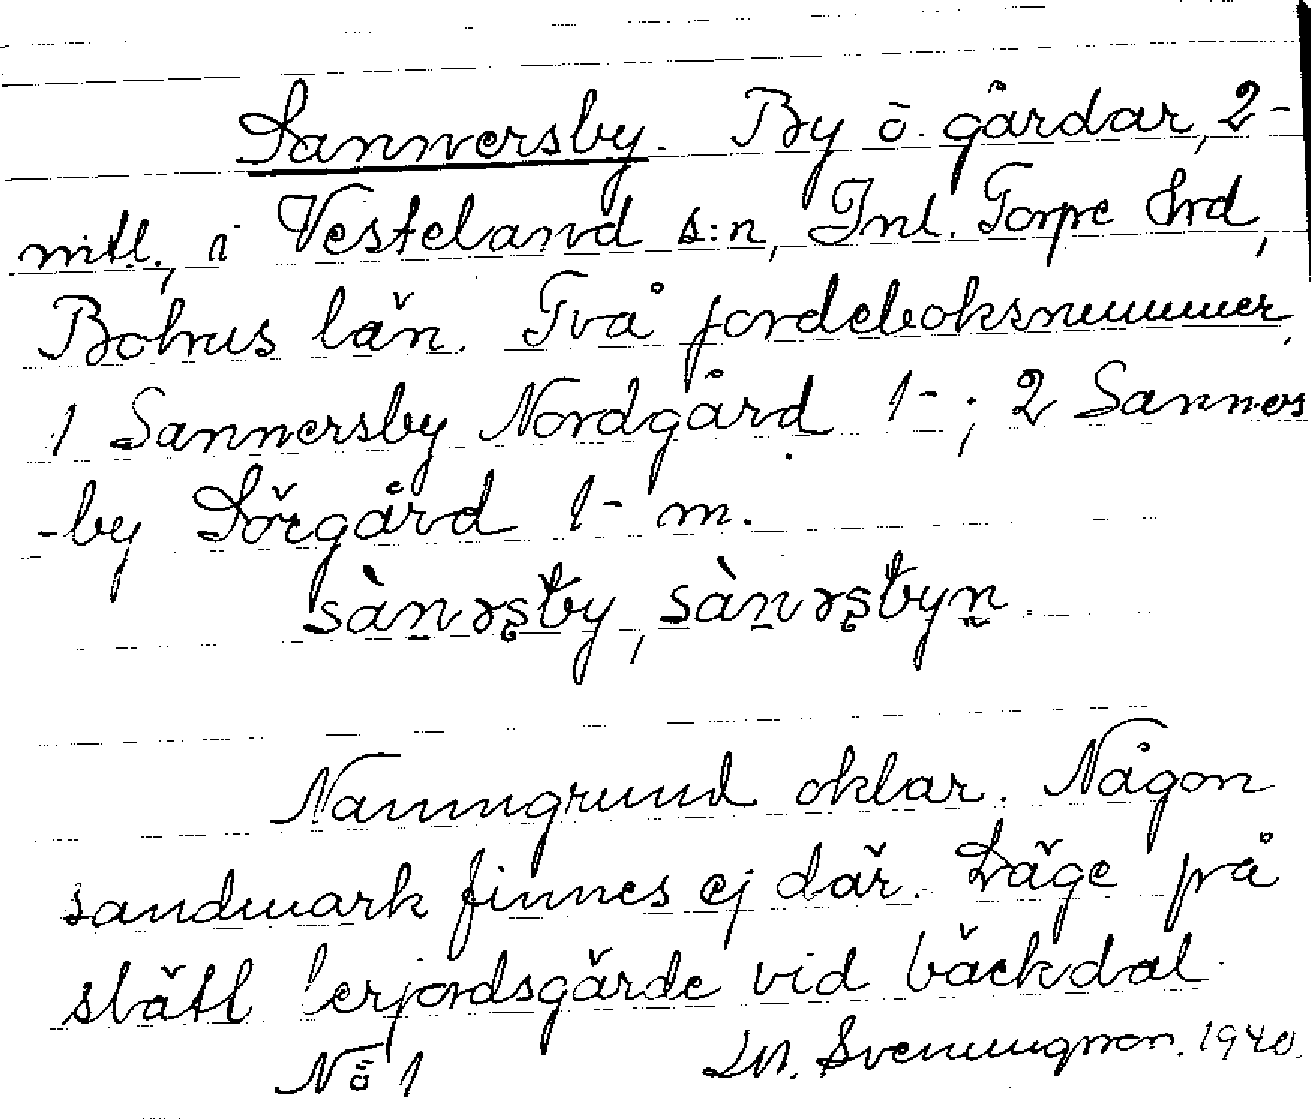 Sannersby. By o. gårdar, 2-
mtl., i Vesteland s:n, Inl. Torpe Hrd,
Bohus län. Två jordeboksnummer,
1 Sannersby Nordgård 1-; 2 Sanners
-by Sörgård 1- m.
sàn̠əʂby, sàn̠əʂbyn̠.
Namngrund oklar. Någon
sandmark finnes ej där. Läge på
slätt lerjordsgärde vid bäckdal.
Nō 1 Svenungsson. 1940.